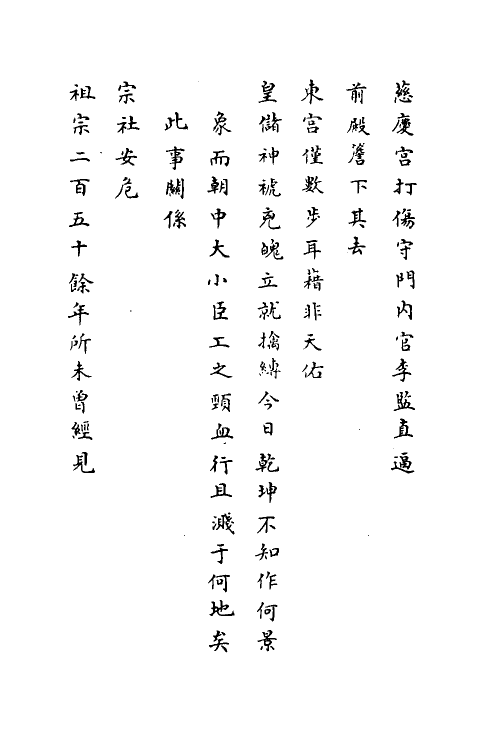 慈慶宮打傷守門內官李鑑直逼
前殿簷下其去
東宮僅數步耳藉非天佑
皇儲神褫兇魄立就擒縛今日乾坤不知作何景
象而朝中大小臣工之頸血行且濺于何地矣
此事關係
宗社安危
祖宗二百五十餘年所未曾經見